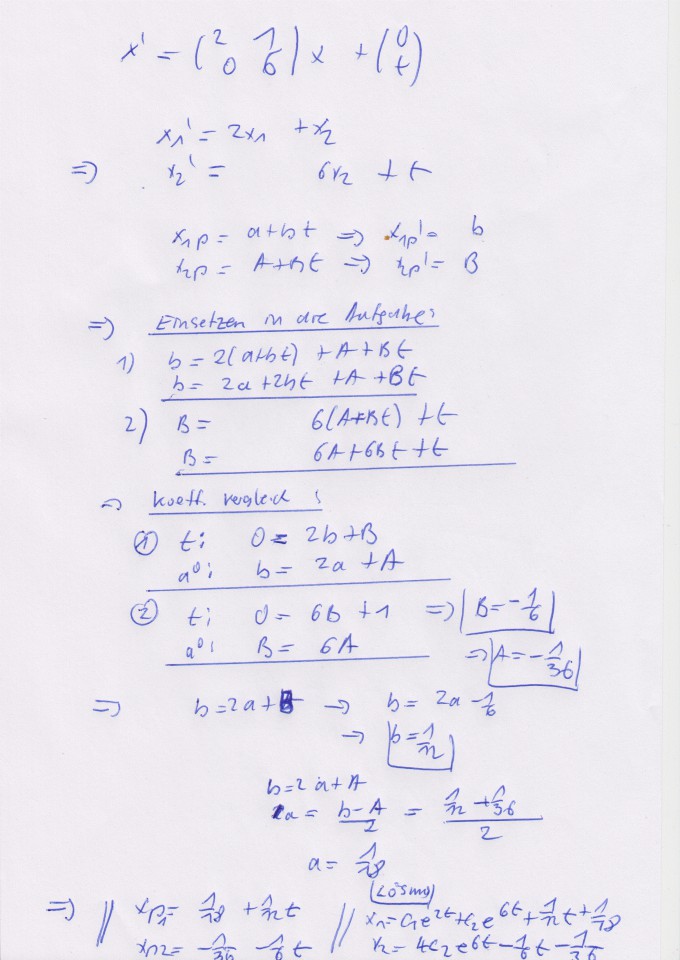 x' = (2 1 0 6) x + (0 t)
x1' = 2x1 + x2
=> x2' = 6x2 + t
x1p = a+bt => x1p' = b
x2p = A+Bt => x2p' = B
=> Einsetzen in die Aufgabe:
1) b = 2(a+bt) + A + Bt
b = 2a+2bt + A + Bt
2) B = 6(A+Bt) + t
B = 6A+6Bt+t
=> Koeff. vergleich :
① t: 0 = 2b+B
a⁰: b = 2a + A
② t: 0 = 6B + 1 => B = -1/6
a⁰: B = 6A => A = -1/36
=> b = 2a + B -> b = 2a - 1/6
-> b = 1/12
b = 2a + A
a = (b-A)/2 = (1/12 + 1/36)/2
a = 1/18
Lösung
=> xp1 = 1/18 + 1/12 t // x1 = c1e^2t + c2e^6t + 1/12 t + 1/18
xp2 = -1/36 - 1/6 t // x2 = 4c2e^6t - 1/6 t - 1/36